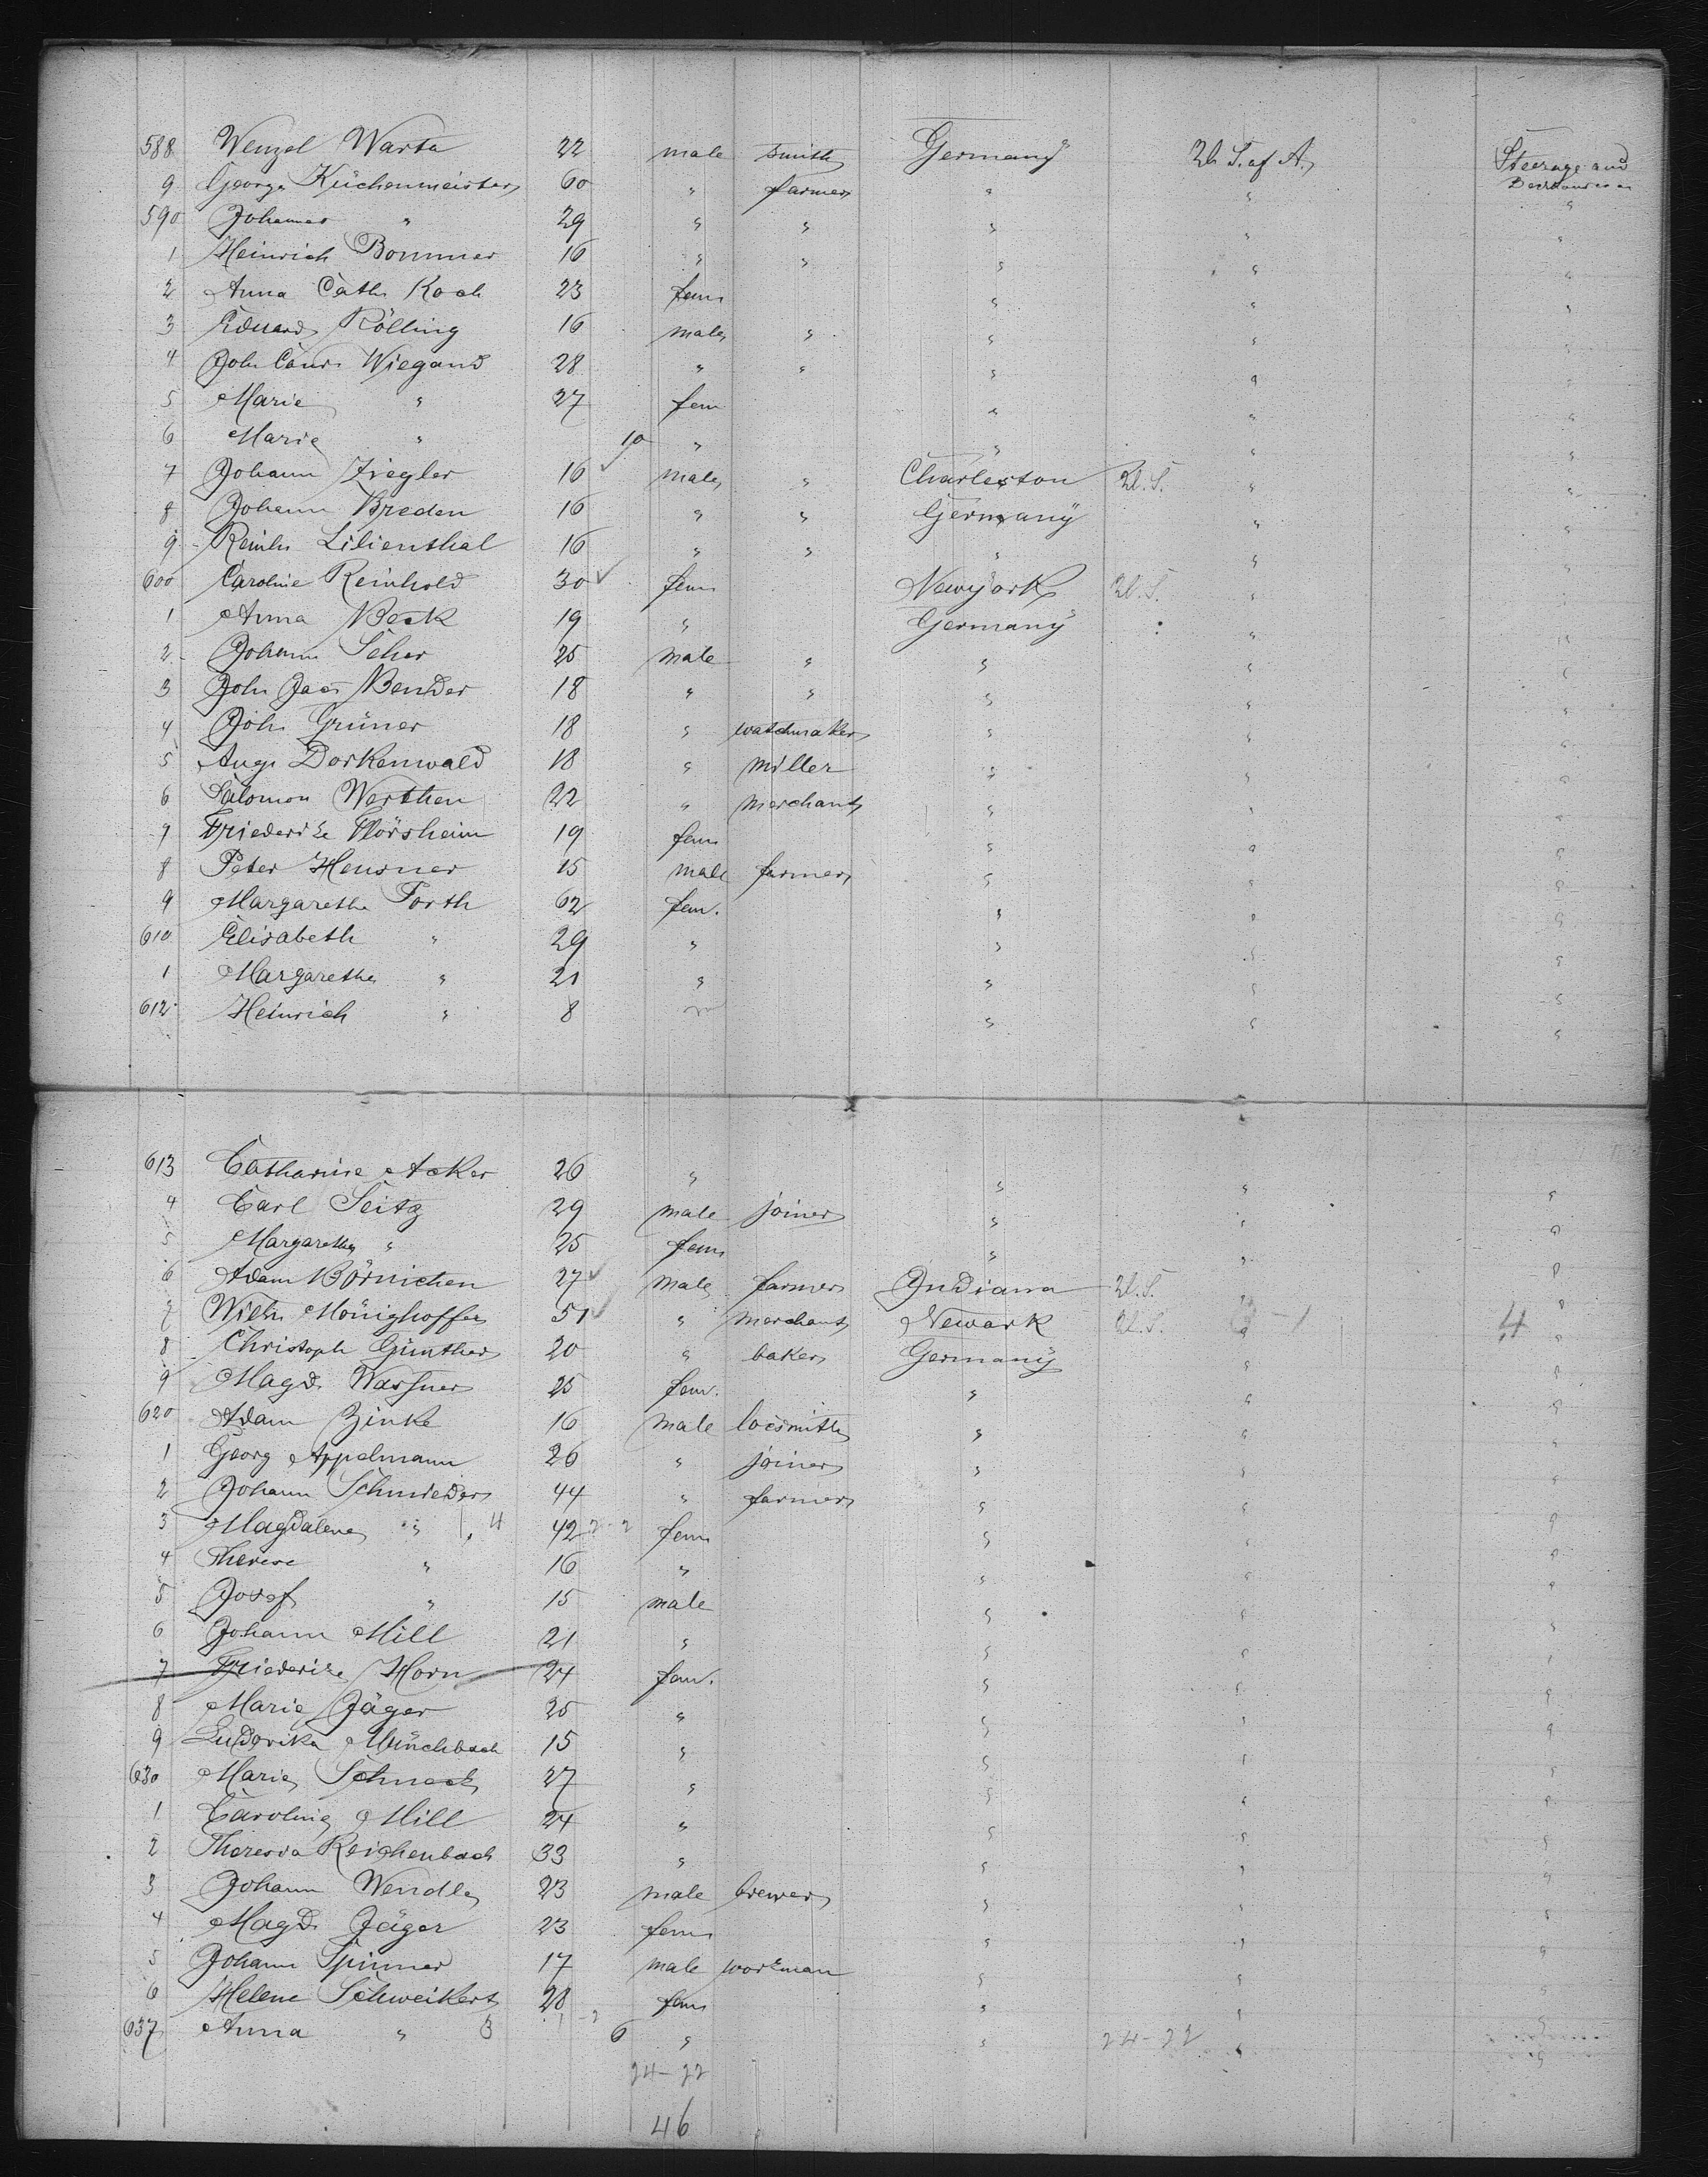 588 Wenzel Warta 22 male smith Germany U. S. of A. Steerage and
9 George Küchenmeister 60 " farmer " "
590 Johannes " 29 " " " " "
1 Heinrich Bommer 16 " " " " "
2 Anna Cath Koch 23 fem " " "
3 Eduard Rölling 16 male " " " "
4 Joh Conr Wiegand 28 " " " " "
5 Marie " 27 fem " " "
6 Marie " 10 " " " "
7 Johann Ziegler 16 male " Charleston U. S. " "
8 Johann Breden 16 " " Germany " "
9 Reinh Lilienthal 16 " " " " "
600 Caroline Reinhold 30 fem Newyork U. S. " "
1 Anna Beck 19 " Germany " "
2 Johann Seher 25 male " " " "
3 Joh Jac Bender 18 " " " " "
4 Joh Grüner 18 " watchmaker " " "
5 Aug Dorkenwald 18 " miller " " "
6 Salomon Werthen 22 " merchant " " "
7 Friederike Flörsheim 19 fem " " "
8 Peter Heusner 15 male farmer " " "
9 Margarethe Forth 62 fem. " " "
610 Elisabeth " 29 " " " "
1 Margarethe " 21 " " " "
612 Heinrich " 8 " " "
613 Catharine Acker 26 " " " "
4 Carl Seitz 29 male joiner " " "
5 Margarethe " 25 fem " " "
6 Adam Börnichen 27 male farmer Indiana U. S. " "
7 Wilh Mönighoffer 51 " merchant Newark U. S. 1 " 4 "
8 Christoph Günther 20 " baker Germany " "
9 Magd. Wassner 25 fem. " " "
620 Adam Zinke 16 male locsmith " " "
1 Georg Appelmann 26 " joiner " " "
2 Johann Schmieder 44 " farmer " " "
3 Magdalena " 4 42 2-2 fem " " "
4 Therese " 16 " " " "
5 Josef " 15 male " " "
6 Johann Mill 21 " " " "
7 Friederike Horn 24 fem. " " "
8 Marie Jäger 25 " " " "
9 Ludovika Münchbach 15 " " " "
630 Marie Schneck 27 " " " "
1 Caroline Mill 24 " " " "
2 Theresia Reichenbach 33 " " " "
3 Johann Wendle 23 male brewer " " "
4 Magd. Jäger 23 fem " " "
5 Johann Spinner 17 male workman " " "
6 Helene Schweikert 28 fem " " "
637 Anna " 3 1-2 6 " " 24-22 " "
24-22
46